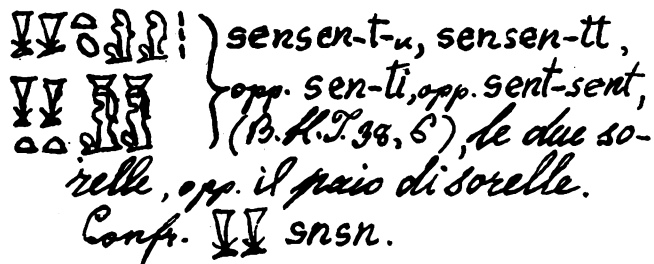 sensen-t-u, sensen-tt,
opp. sen-ti, opp. sent-sent,
(B.H.T. 38, 6), le due so-
relle, opp. il paio di sorelle.
Confr. snsn.